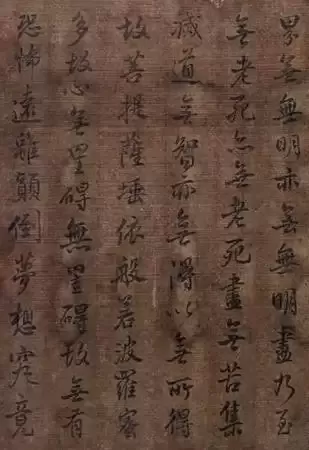 界無無明亦無無明盡乃至
無老死亦無老死盡無苦集
滅道無智亦無得以無所得
故菩提薩埵依般若波羅蜜
多故心無罣碍無罣碍故無有
恐怖遠離顛倒夢想究竟